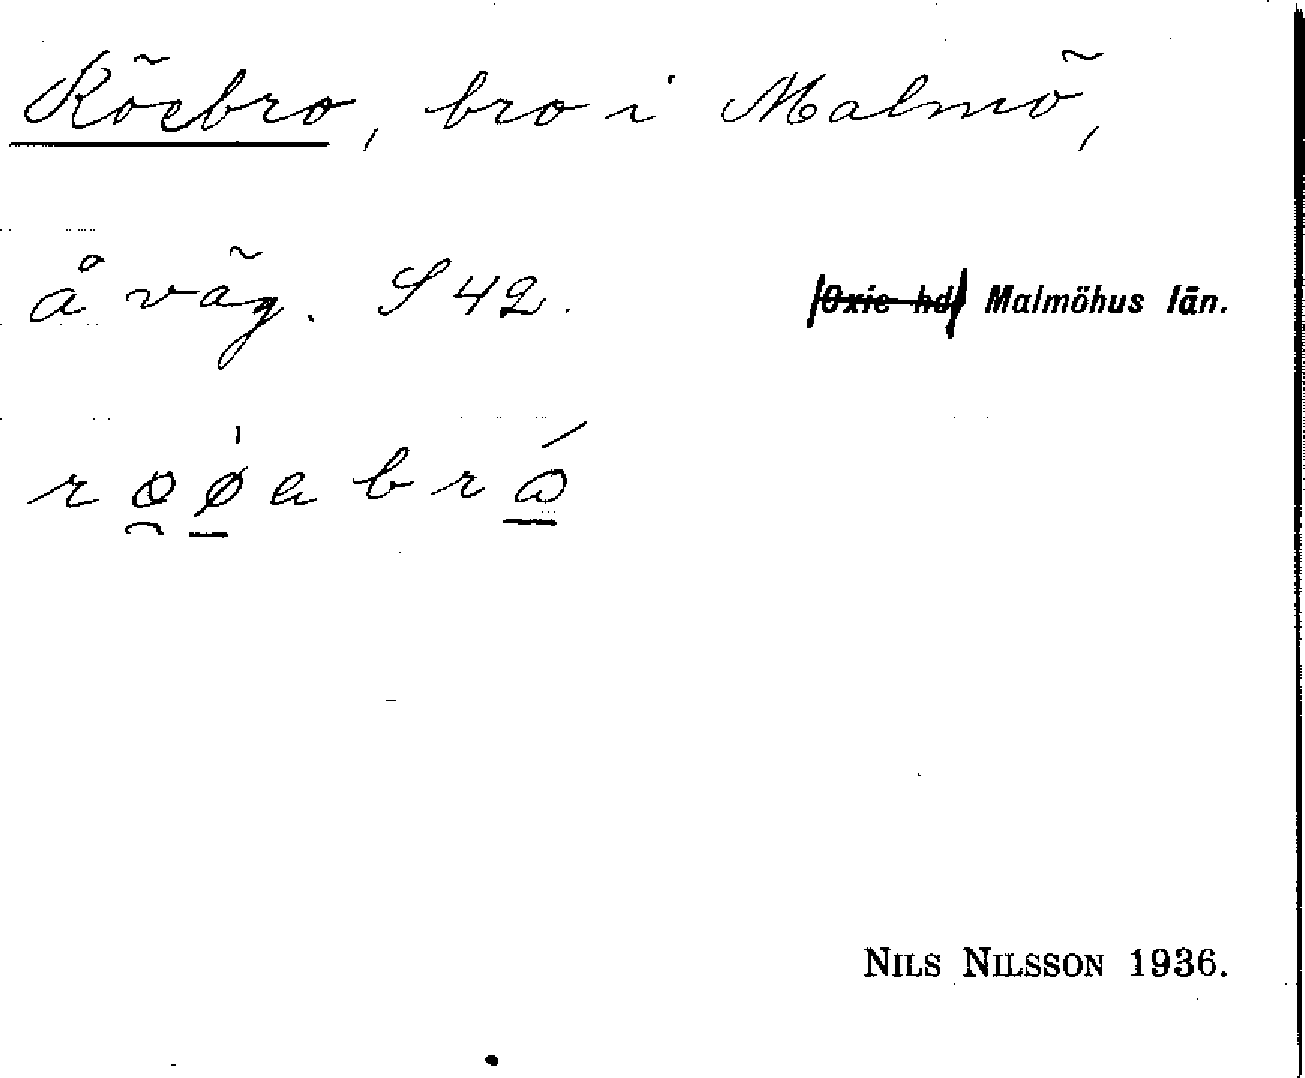 Röebro, bro i Malmö,
å väg. S 42. Oxie hd Malmöhus län.
Nils Nilsson 1936.